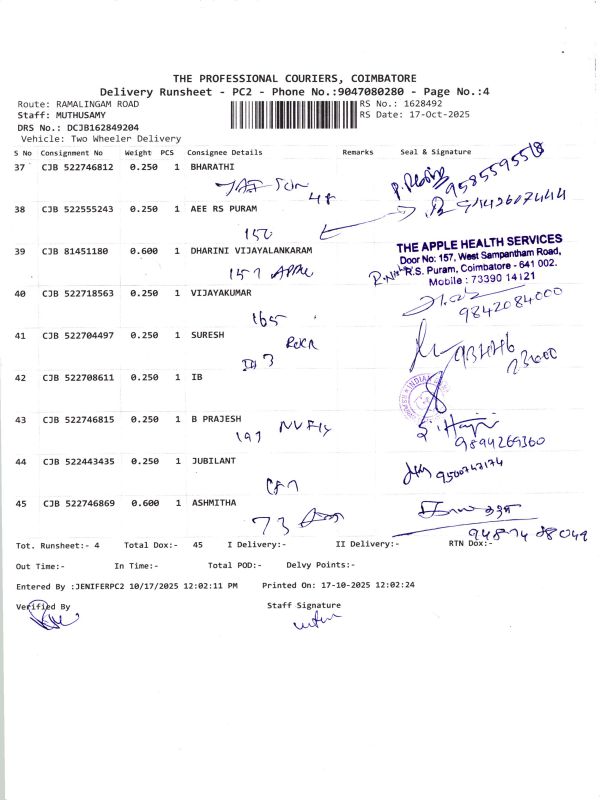 THE PROFESSIONAL COURIERS, COIMBATORE
Delivery Runsheet - PC2 - Phone No.:9047080280 - Page No.:4
Route: RAMALINGAM ROAD RS No.: 1628492
Staff: MUTHUSAMY RS Date: 17-Oct-2025
DRS No.: DCJB162849204
Vehicle: Two Wheeler Delivery
S No Consignment No Weight PCS Consignee Details Remarks Seal & Signature
37 CJB 522746812 0.250 1 BHARATHI
9585595518
48
38 CJB 522555243 0.250 1 AEE RS PURAM
150
39 CJB 81451180 0.600 1 DHARINI VIJAYALANKARAM
157 APPLE
THE APPLE HEALTH SERVICES
Door No: 157, West Sampantham Road,
R.S. Puram, Coimbatore - 641 002.
Mobile : 73390 14121
40 CJB 522718563 0.250 1 VIJAYAKUMAR
165
9842084000
41 CJB 522704497 0.250 1 SURESH
93446
23000
42 CJB 522708611 0.250 1 IB
INDIAN
43 CJB 522746815 0.250 1 B PRAJESH
197
9894269360
44 CJB 522443435 0.250 1 JUBILANT
9500742174
45 CJB 522746869 0.600 1 ASHMITHA
73
94874 08049
Tot. Runsheet:- 4 Total Dox:- 45 I Delivery:- II Delivery:- RTN Dox:-
Out Time:- In Time:- Total POD:- Delvy Points:-
Entered By :JENIFERPC2 10/17/2025 12:02:11 PM Printed On: 17-10-2025 12:02:24
Verified By Staff Signature